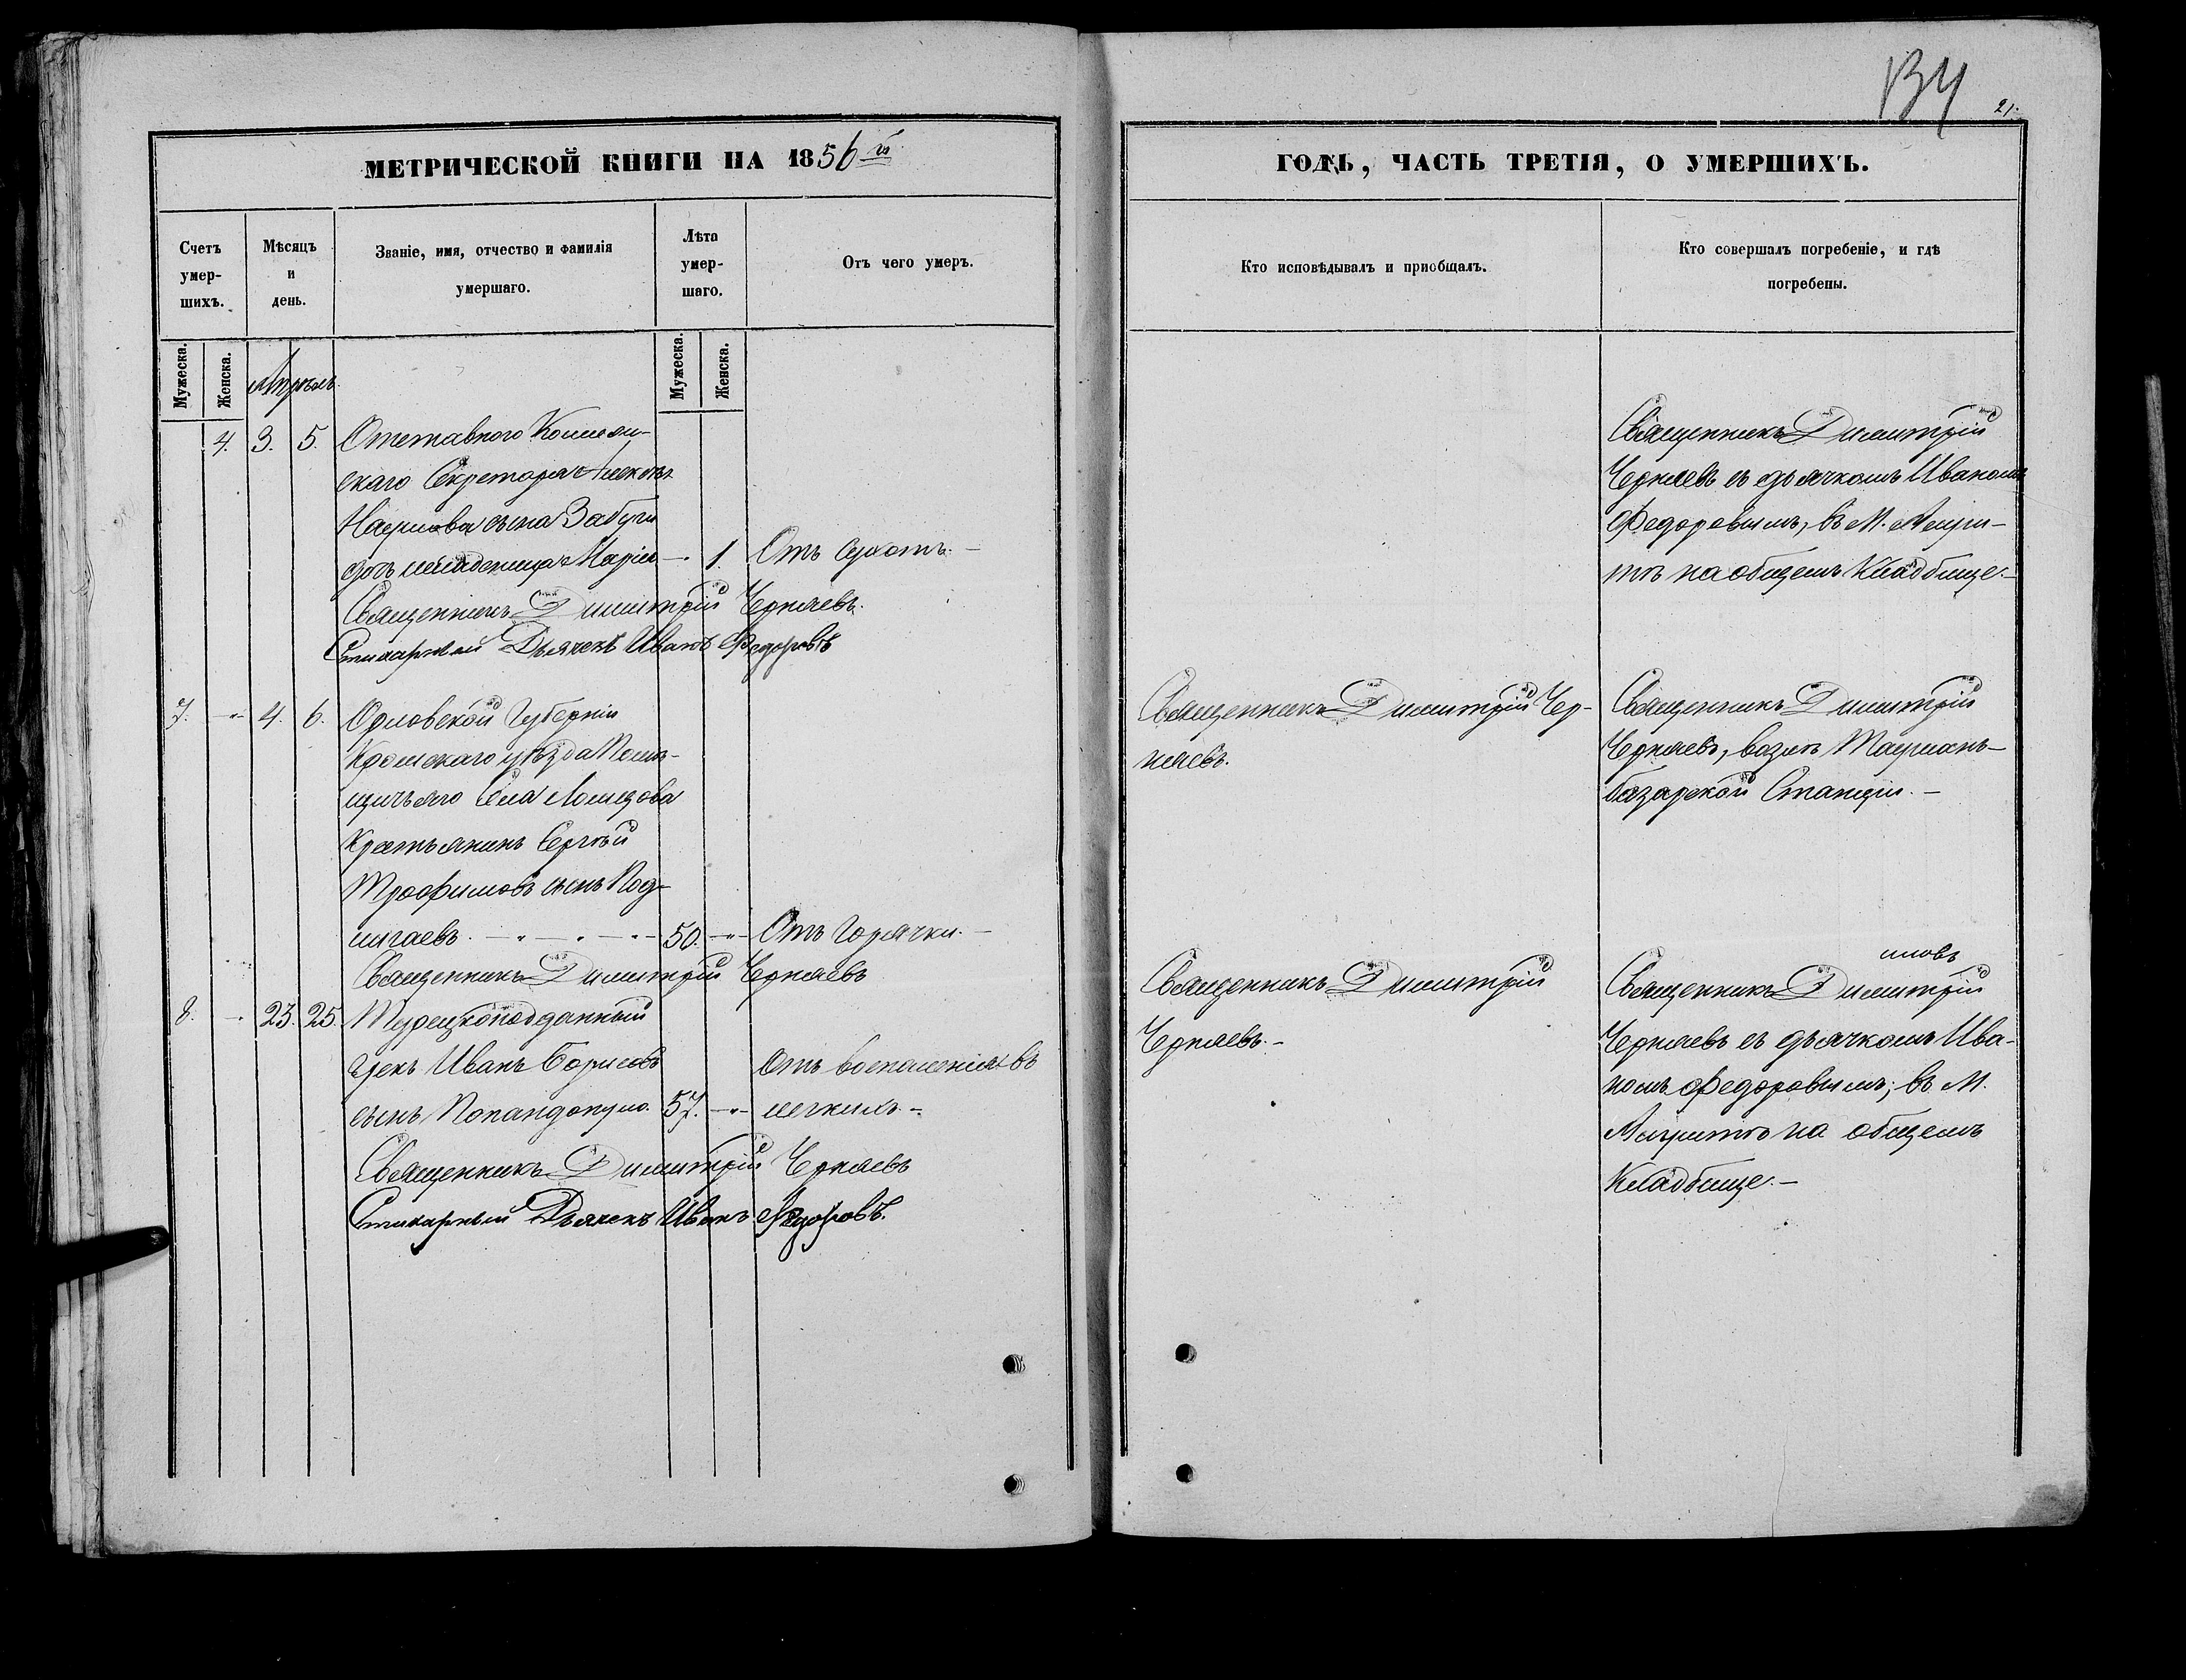 134
21.
МЕТРИЧЕСКОЙ КНИГИ НА 1856й
Счетъ умер-шихъ.
Мѣсяцъ и день.
Званіе, имя, отчество и фамилія умершаго.
Лѣта умер-шаго.
Отъ чего умеръ.
Мужеска.
Женска.
Мужеска.
Женска.
Апрѣль
4. 3. 5. Отставного Коллежи-
скаго Секретаря Алексѣя
Наумова сына Забуги
дочь младеница Марія — 1. Отъ сухотъ. —
Священникъ Димитрій Черняевъ.
Стихарный Дьячекъ Иванъ Федоровъ
7. -"- 4. 6. Орловской Губерніи
Кромскаго уѣзда Помѣ-
щичьяго Села Ломцова
Крестьянинъ Сергѣй
Трофимовъ сынъ Под-
лигаевъ. 50. -"- Отъ Горячки. —
Священникъ Димитрій Черняевъ
8. - 23. 25. Турецкоподданный
грекъ Иванъ Борисовъ
сынъ Попандопуло. 57. -"-
Отъ воспаленія въ
легкихъ. -
Священникъ Димитрій Черняевъ
Стихарный Дьячекъ Иванъ Федоровъ.
ГОДЪ, ЧАСТЬ ТРЕТІЯ, О УМЕРШИХЪ.
Кто исповѣдывалъ и пріобщалъ.
Кто совершалъ погребеніе, и гдѣ
погребены.
Священникъ Димитрій
Черняевъ съ дьячкомъ Иваномъ
Федоровымъ, въ М.
на общемъ Кладбище. —
Священникъ Димитрій Чер-
няевъ.
Священникъ Димитрій
Черняевъ, возлѣ
базарской Станціи. —
Священникъ Димитрій
Черняевъ. -
Священникъ Димитрій
Черняевъ съ дьячкомъ Ива-
номъ Федоровымъ; въ М.
на общемъ
Кладбище. —